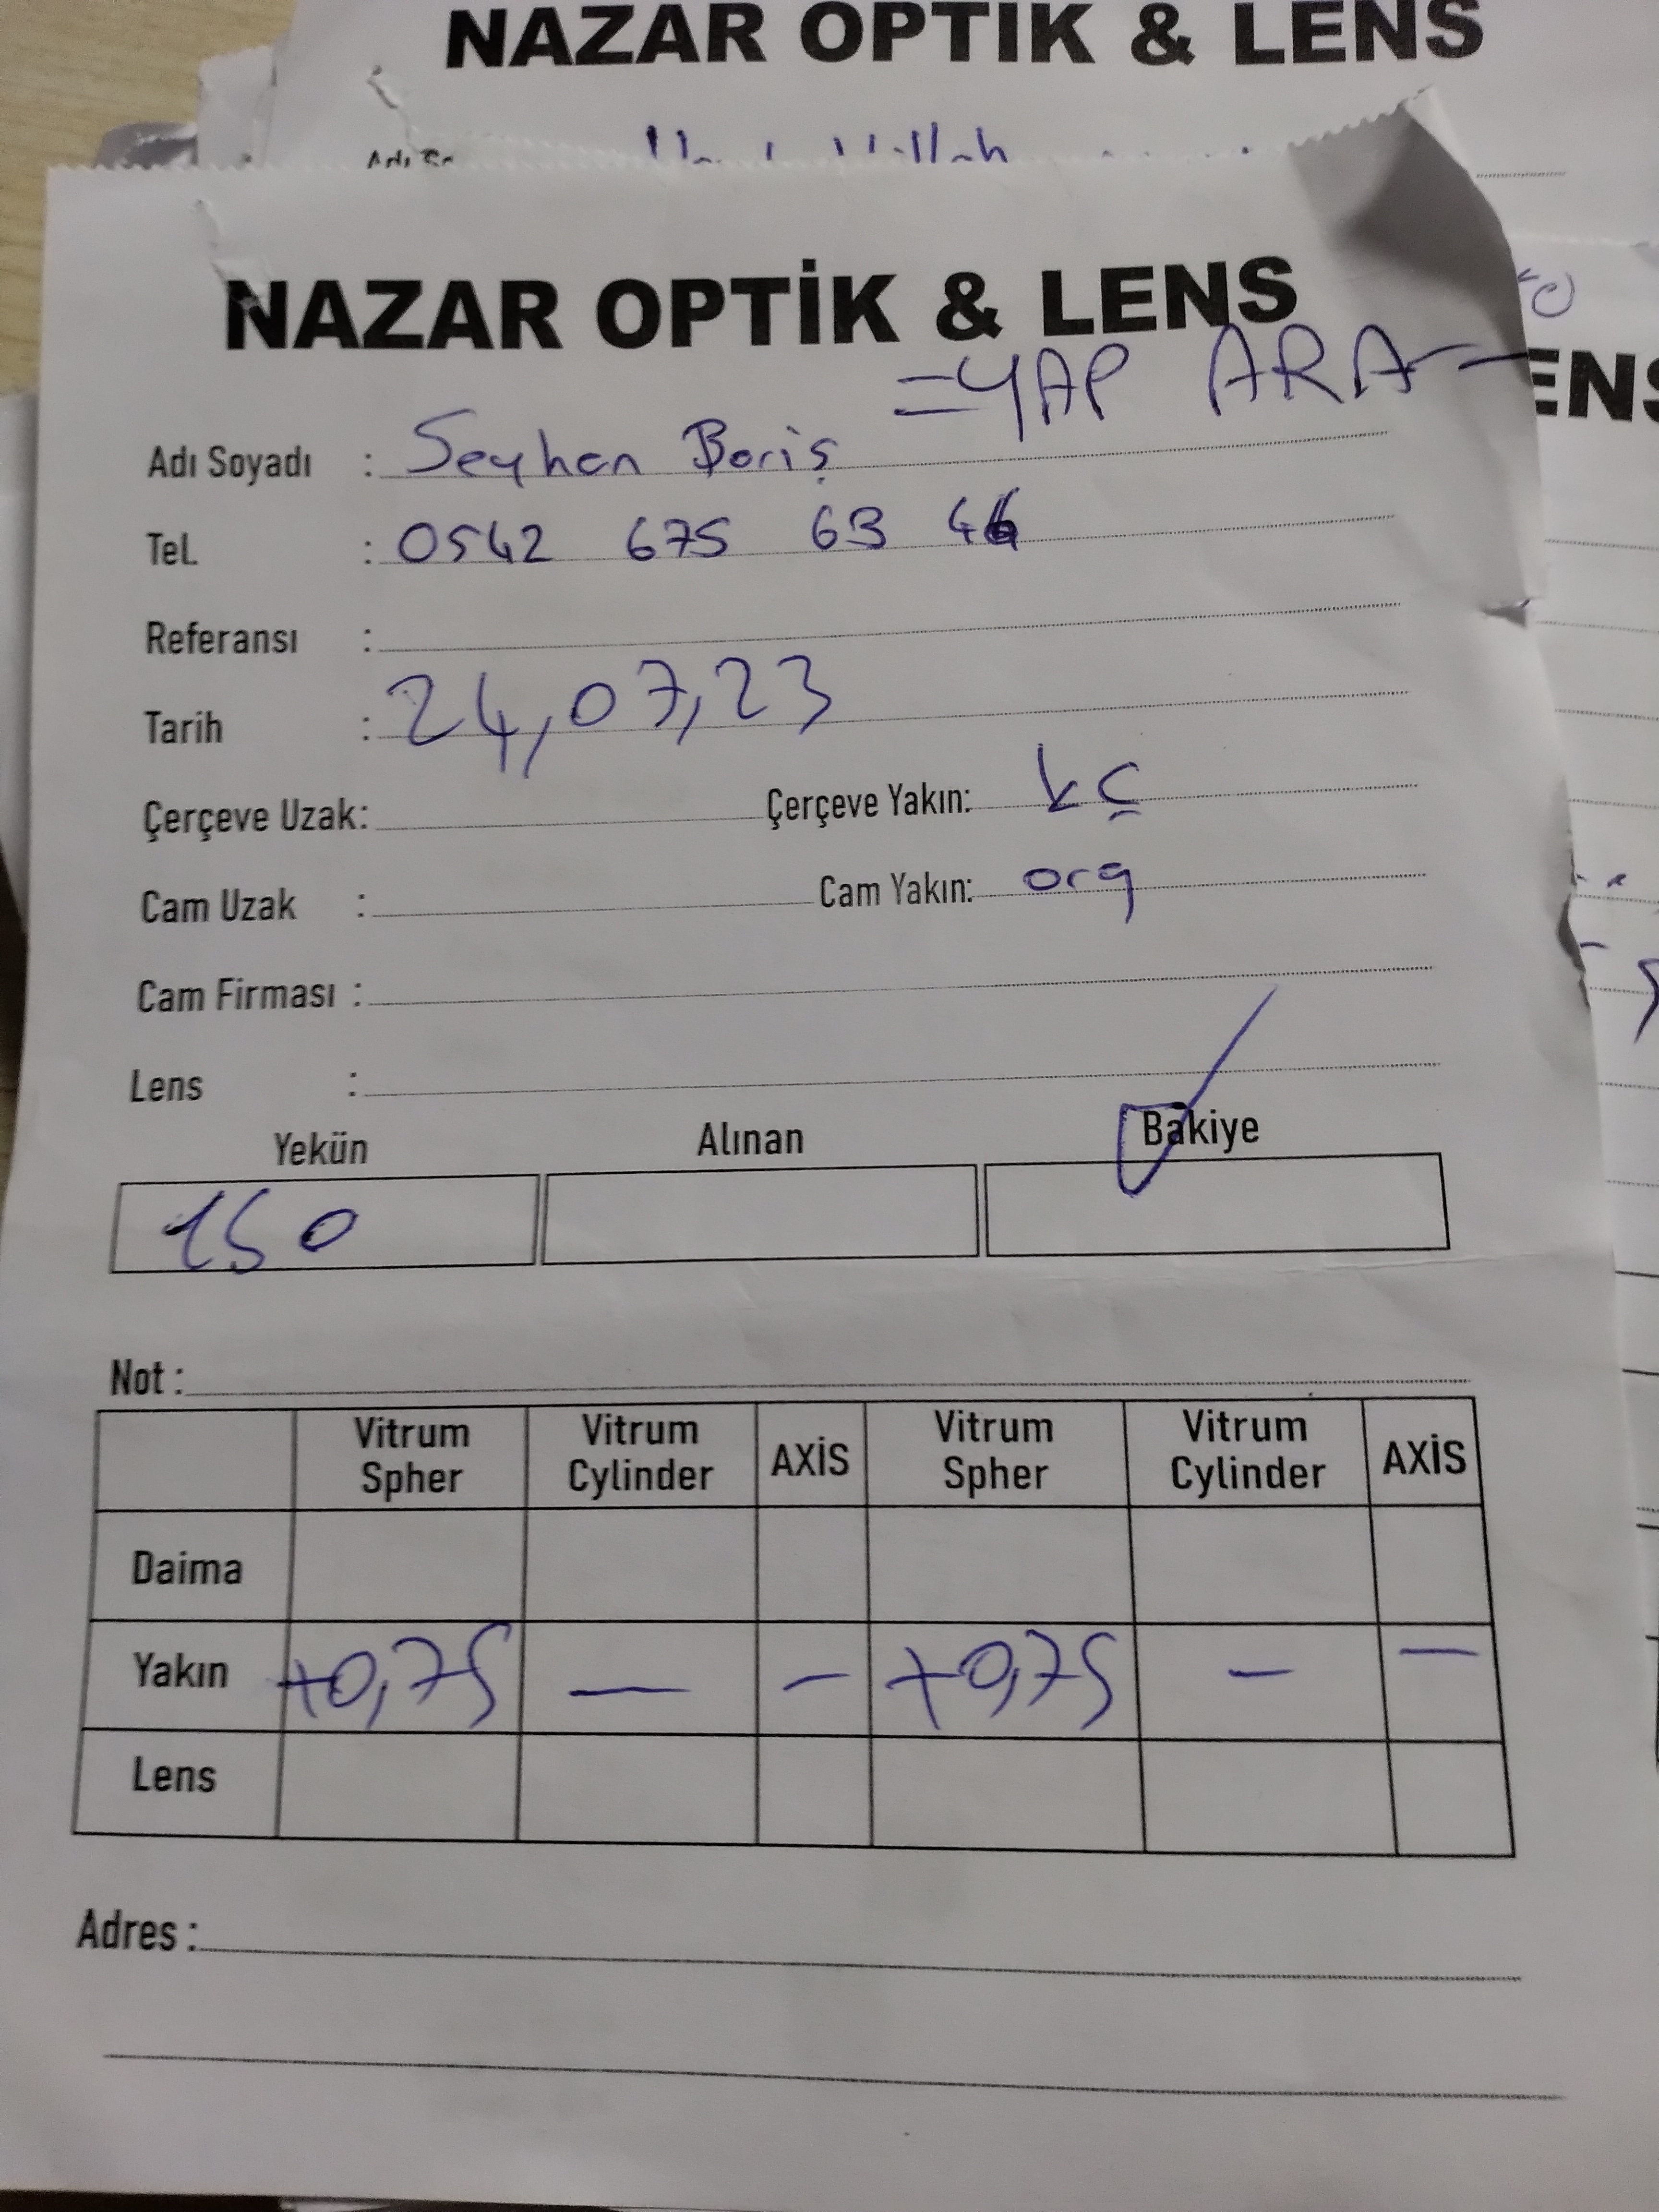 NAZAR OPTİK & LENS
NAZAR OPTİK & LENS
=YAP ARA-
ENS
Adı Soyadı : Seyhan Barış
Tel. : 0542 675 63 46
Referansı :
Tarih : 24,07,23
Çerçeve Uzak: Çerçeve Yakın: kç
Cam Uzak : Cam Yakın: org
Cam Firması :
Lens :
Yekün Alınan Bakiye
150
Not :
Vitrum Spher Vitrum Cylinder AXİS Vitrum Spher Vitrum Cylinder AXİS
Daima
Yakın +0,75 — — +0,75 — —
Lens
Adres :